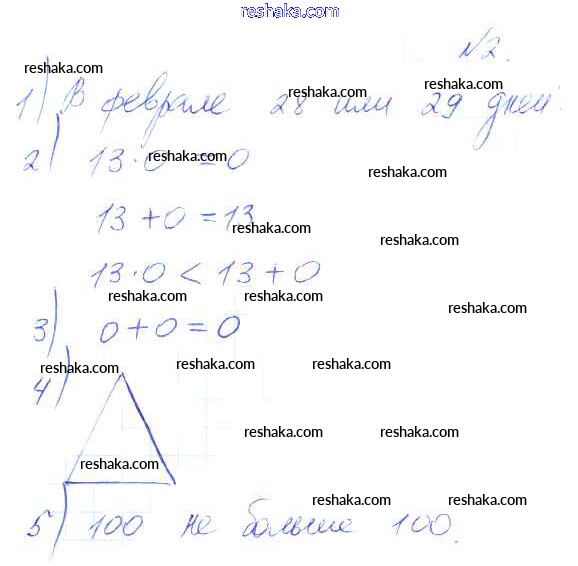 reshaka.com
№2.
reshaka.com
reshaka.com reshaka.com
1) В феврале 28 или 29 дней.
2) 13·0 = 0
reshaka.com
reshaka.com
13+0=13
reshaka.com
reshaka.com
13·0 < 13+0
reshaka.com reshaka.com
reshaka.com
3) 0+0=0
reshaka.com reshaka.com reshaka.com
4)
reshaka.com reshaka.com
reshaka.com
reshaka.com reshaka.com
5) 100 не больше 100.